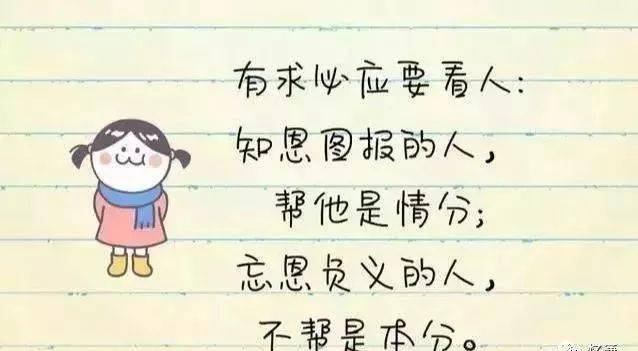 有求必应要看人:
知恩图报的人,
帮他是情分;
忘恩负义的人,
不帮是本分。